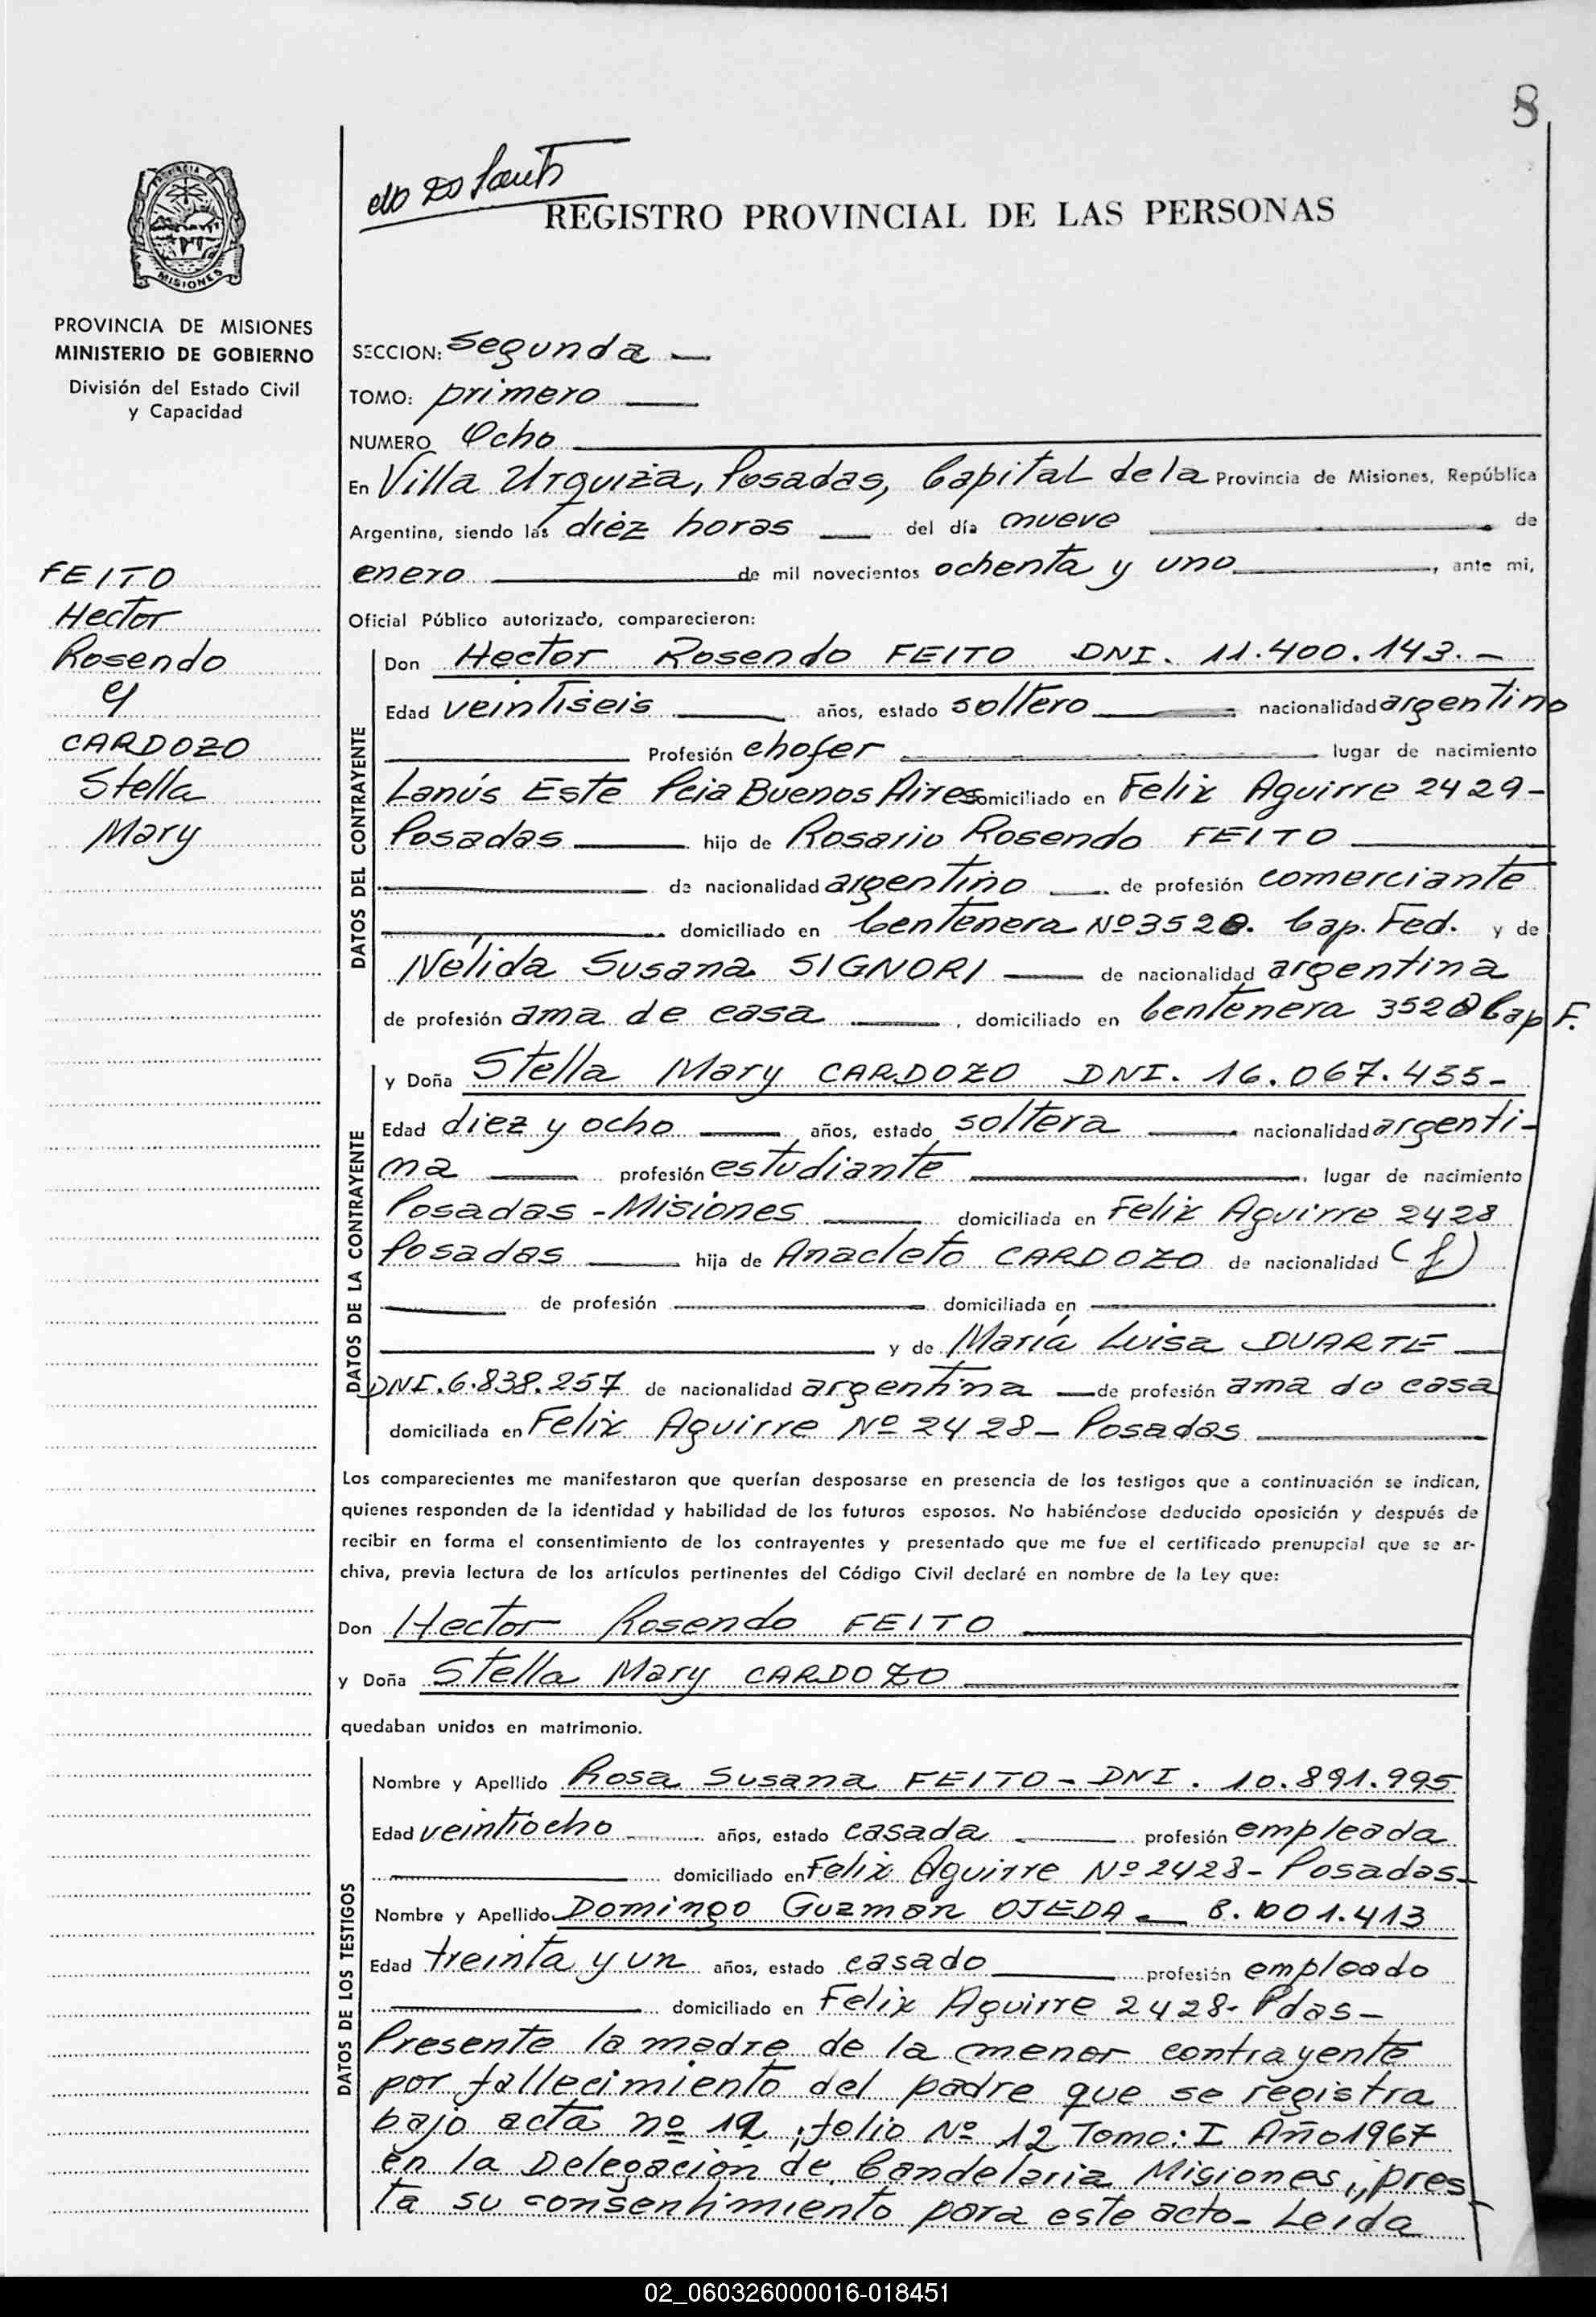 8
REGISTRO PROVINCIAL DE LAS PERSONAS
PROVINCIA
MISIONES
PROVINCIA DE MISIONES
MINISTERIO DE GOBIERNO
División del Estado Civil
y Capacidad
FEITO
Hector
Rosendo
y
CARDOZO
Stella
Mary
SECCION: Segunda
TOMO: primero
NUMERO Ocho
En Villa Urquiza, Posadas, Capital de la Provincia de Misiones, República
Argentina, siendo las diez horas del día nueve de
enero de mil novecientos ochenta y uno, ante mi,
Oficial Público autorizado, comparecieron:
DATOS DEL CONTRAYENTE
Don Hector Rosendo FEITO DNI. 11.400.143.-
Edad veintiseis años, estado soltero nacionalidad argentino
Profesión chofer lugar de nacimiento
Lanús Este Pcia Buenos Aires domiciliado en Felix Aguirre 2429-
Posadas hijo de Rosario Rosendo FEITO
de nacionalidad argentino de profesión comerciante
domiciliado en Centenera Nº 3528. Cap. Fed. y de
Nélida Susana SIGNORI de nacionalidad argentina
de profesión ama de casa, domiciliado en Centenera 3528 Cap F.
DATOS DE LA CONTRAYENTE
y Doña Stella Mary CARDOZO DNI. 16.067.455-
Edad diez y ocho años, estado soltera nacionalidad argenti-
na profesión estudiante, lugar de nacimiento
Posadas - Misiones domiciliada en Felix Aguirre 2428
Posadas hija de Anacleto CARDOZO de nacionalidad (f)
de profesión domiciliada en
y de María Luisa DUARTE
DNI. 6.838.257 de nacionalidad argentina de profesión ama de casa
domiciliada en Felix Aguirre Nº 2428- Posadas
Los comparecientes me manifestaron que querían desposarse en presencia de los testigos que a continuación se indican,
quienes responden de la identidad y habilidad de los futuros esposos. No habiéndose deducido oposición y después de
recibir en forma el consentimiento de los contrayentes y presentado que me fue el certificado prenupcial que se ar-
chiva, previa lectura de los artículos pertinentes del Código Civil declaré en nombre de la Ley que:
Don Hector Rosendo FEITO
y Doña Stella Mary CARDOZO
quedaban unidos en matrimonio.
DATOS DE LOS TESTIGOS
Nombre y Apellido Rosa Susana FEITO - DNI. 10.891.995
Edad veintiocho años, estado casada profesión empleada
domiciliado en Felix Aguirre Nº 2428- Posadas-
Nombre y Apellido Domingo Guzman OJEDA
Edad treinta y un años, estado casado profesión empleado
domiciliado en Felix Aguirre 2428- Pdas-
Presente la madre de la menor contrayente
por fallecimiento del padre que se registra
bajo acta nº folio Nº 12 Tomo: I Año 1967
en la Delegación de Candelaria Misiones, pres
ta su consentimiento para este acto- Leida
02_060326000016-018451